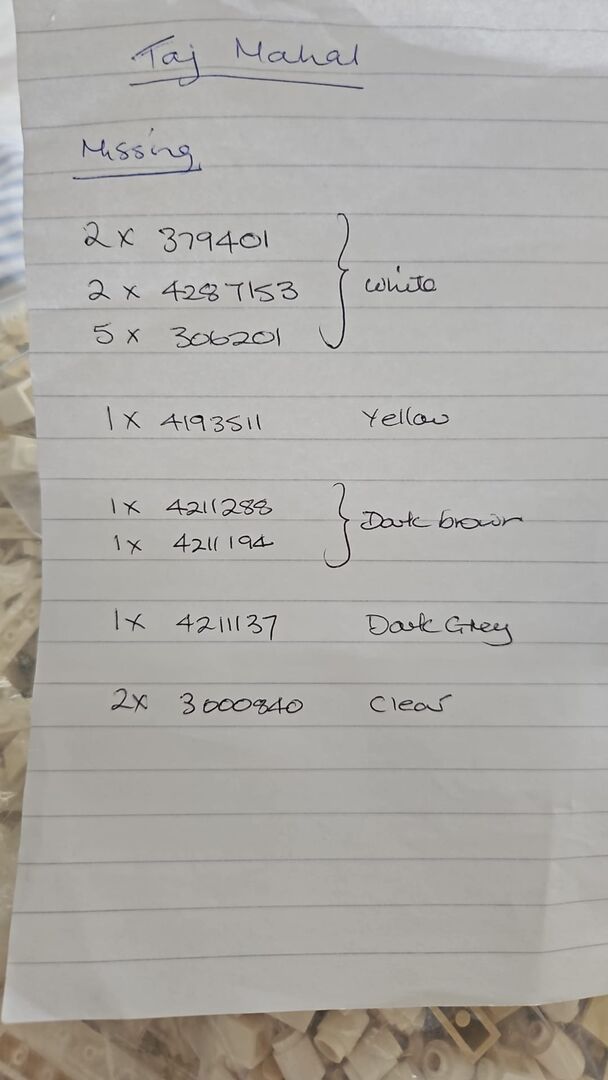 Taj Mahal
Missing
2 x 379401
2 x 4287153 } White
5 x 306201
1 x 4193511 Yellow
1 x 4211288
1 x 4211194 } Dark brown
1 x 4211137 Dark Grey
2 x 3000840 Clear